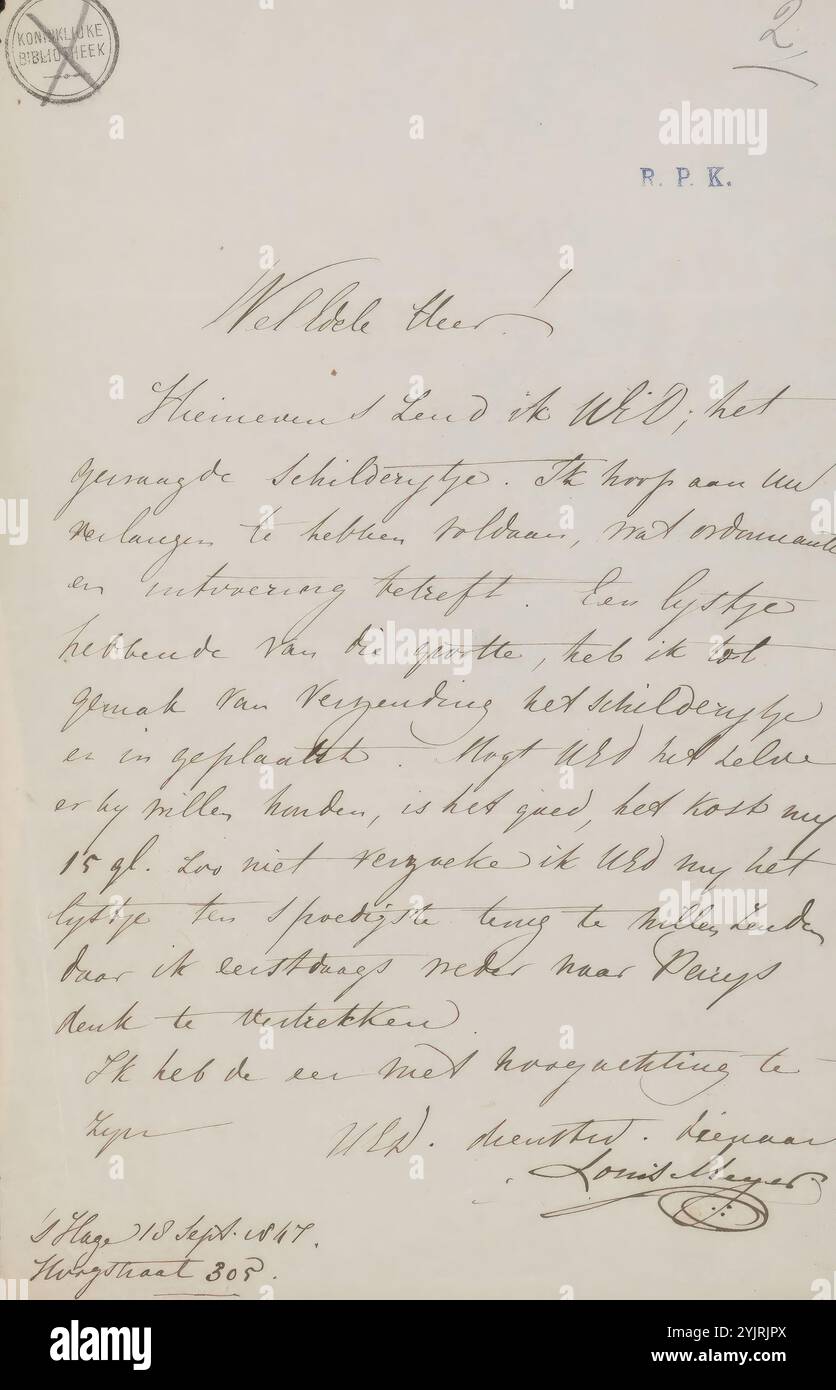 KONINKLIJKE
BIBLIOTHEEK
2
R. P. K.
Wel Edele Heer!
Hiernevens Zend ik UED; het
gevraagde Schilderytje. Ik hoop aan Uw
verlangen te hebben voldaan, wat ordonnantie
en uitvoering betreft. Een lystje
hebbende van die grootte, heb ik tot
gemak van Verzending het Schilderytje
er in geplaatst. Mogt UEd het zelve
er by willen houden, is het goed, het kost my
15 gl. Zoo niet verzoeke ik UEd my het
lystje ten spoedigste terug te willen Zenden
daar ik eerstdaags weder naar Parys
denk te vertrekken.
Ik heb de eer met hoogachting te
Zyn
UEd. dienstw. dienaar
Louis Meyer
's Hage 18 Sept. 1847.
Hoogstraat 305.
alamy
alamy
Image ID: 2YJRJPX
www.alamy.com